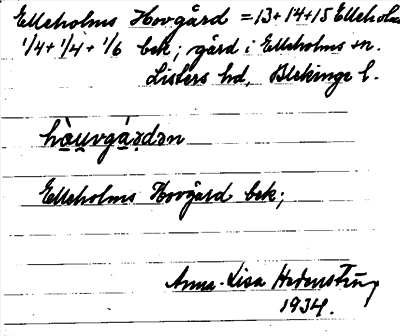 Elleholms Hovgård = 13+14+15 Elleholm
1/4+1/4+1/6 bek; gård i Elleholms sn.
Listers hd, Blekinge l.
hạ̀u̯vgáṛdən
Elleholms Hovgård bek;
Anna-Lisa Hedensting
1934.